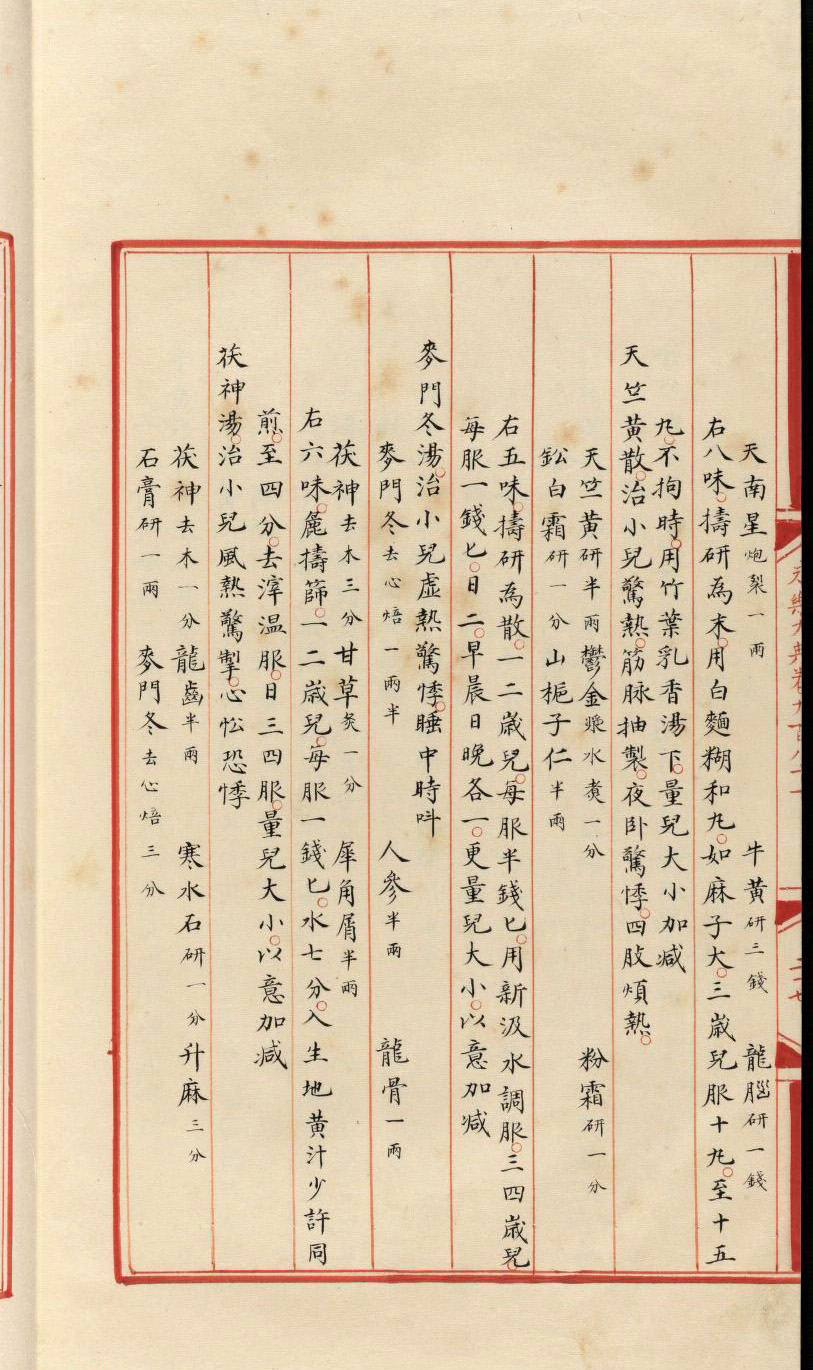 天南星炮裂一兩 牛黃研三錢 龍腦研一錢
右八味。擣研為末。用白麵糊和丸。如麻子大。三歲兒服十丸。至十五
丸。不拘時。用竹葉乳香湯下。量兒大小加減
天竺黃散。治小兒驚熱。筋脉抽掣。夜卧驚悸。四肢煩熱。
天竺黃研半兩 鬱金漿水煑一分 粉霜研一分
鈆白霜研一分 山梔子仁半兩
右五味。擣研為散。一二歲兒。每服半錢匕。用新汲水調服。三四歲兒。
每服一錢匕。日二。早晨日晚各一。更量兒大小。以意加減
麥門冬湯。治小兒虛熱驚悸。睡中時叫
麥門冬去心焙一兩半 人參半兩 龍骨一兩
茯神去木三分 甘草炙一分 犀角屑半兩
右六味。麄擣篩。一二歲兒。每服一錢匕。水七分。入生地黃汁少許同
煎。至四分。去滓溫服。日三四服。量兒大小。以意加減
茯神湯。治小兒風熱驚掣。心忪恐悸
茯神去木一分 龍齒半兩 寒水石研一分 升麻三分
石膏研一兩 麥門冬去心焙三分